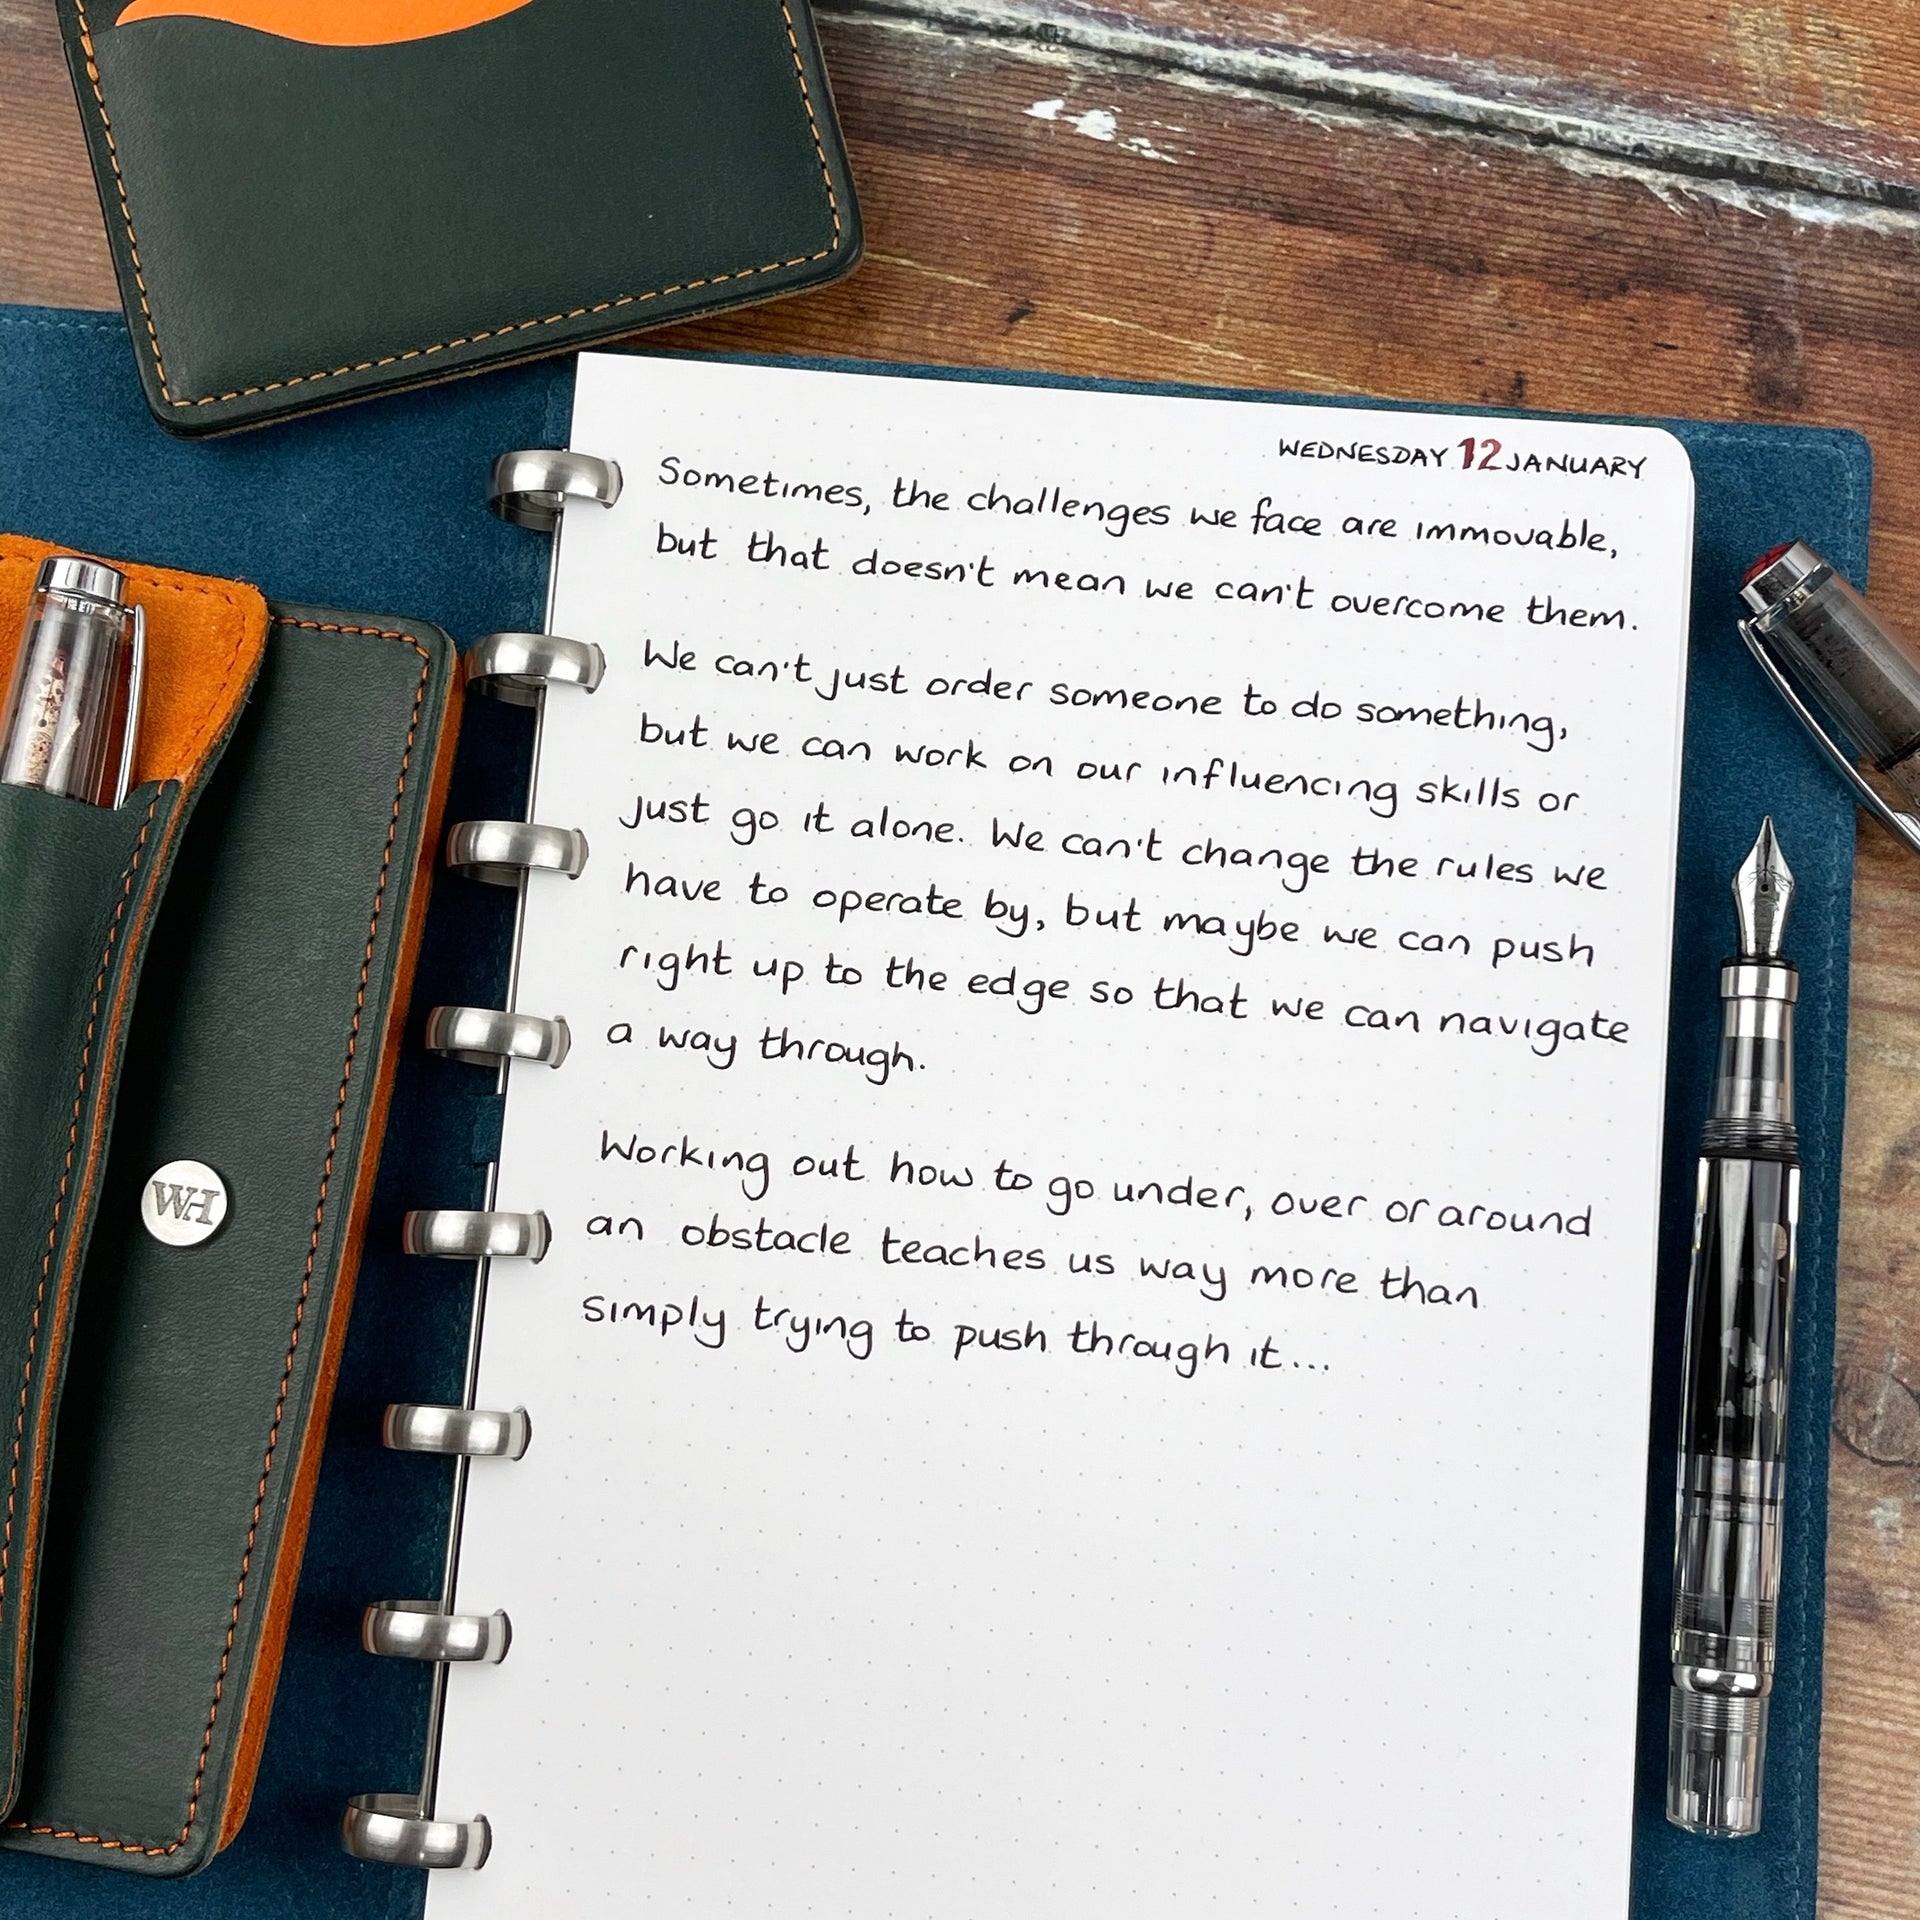 WEDNESDAY 12 JANUARY
Sometimes, the challenges we face are immovable,
but that doesn't mean we can't overcome them.
We can't just order someone to do something,
but we can work on our influencing skills or
just go it alone. We can't change the rules we
have to operate by, but maybe we can push
right up to the edge so that we can navigate
a way through.
Working out how to go under, over or around
an obstacle teaches us way more than
simply trying to push through it...
WH